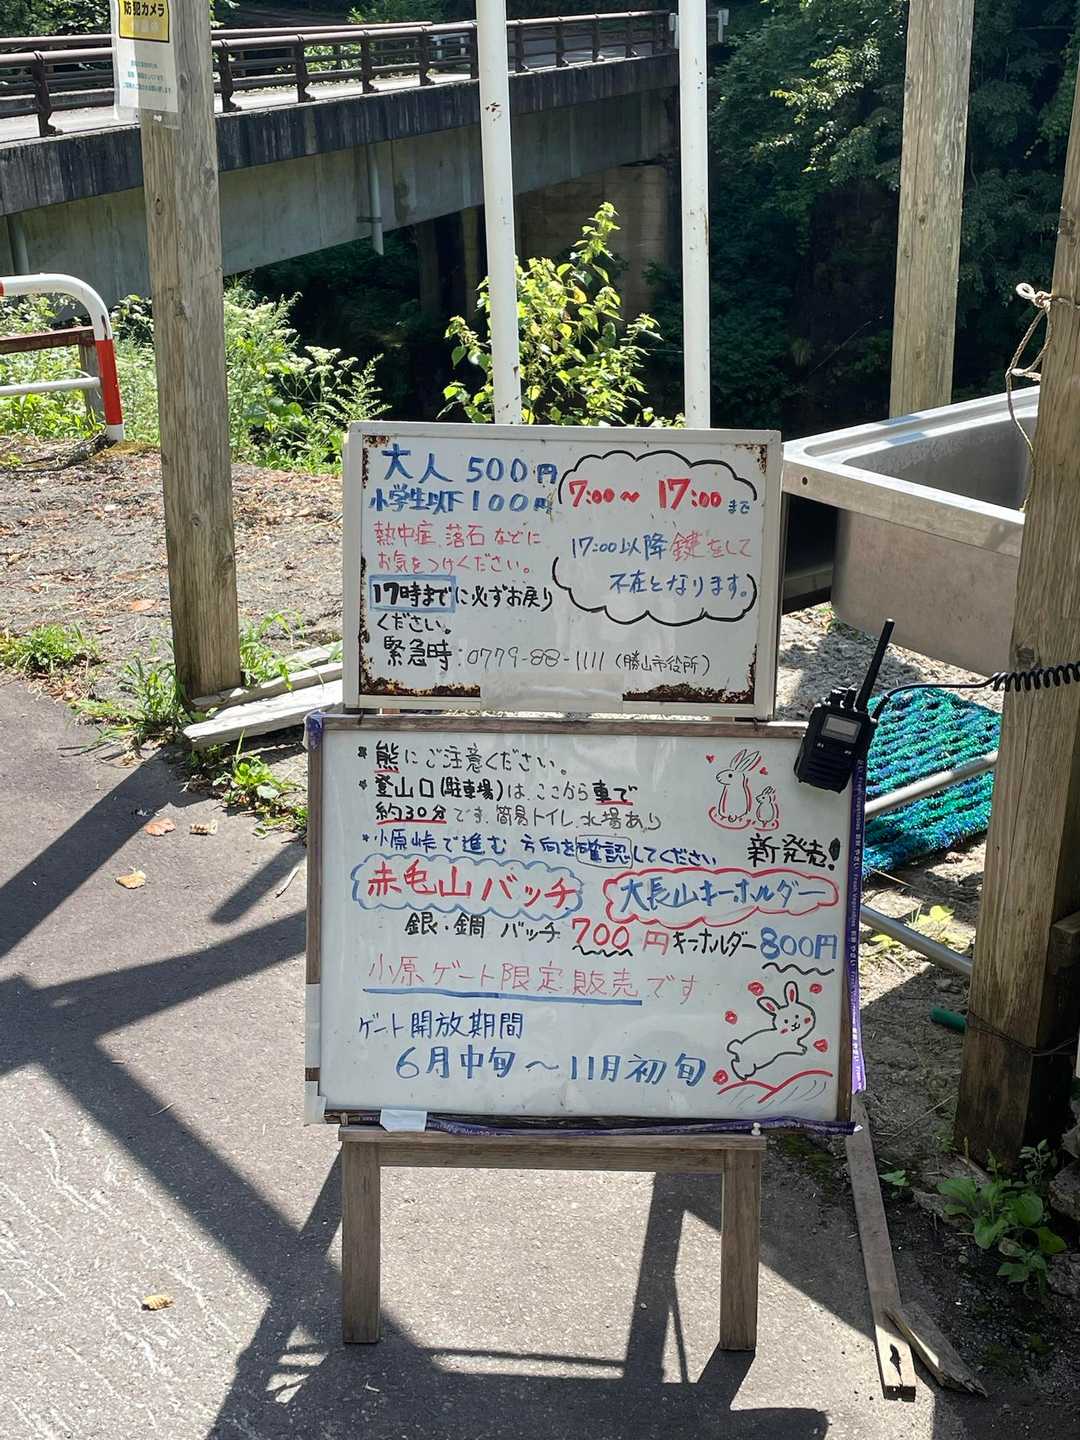 防犯カメラ
大人 500円
小学生以下 100円
7:00～17:00まで
熱中症、落石などに
お気をつけください。
17:00以降 鍵をして
不在となります。
17時までに必ずお戻り
ください。
緊急時:0779-88-1111 (勝山市役所)
* 熊にご注意ください。
* 登山口(駐車場)は、ここから車で
約30分です。簡易トイレ、水場あり
*小原峠で進む 方向を確認してください
新発売!
赤毛山バッチ
大長山キーホルダー
銀・銅 バッチ 700円 キーホルダー 800円
小原ゲート限定販売です
ゲート開放期間
6月中旬～11月初旬